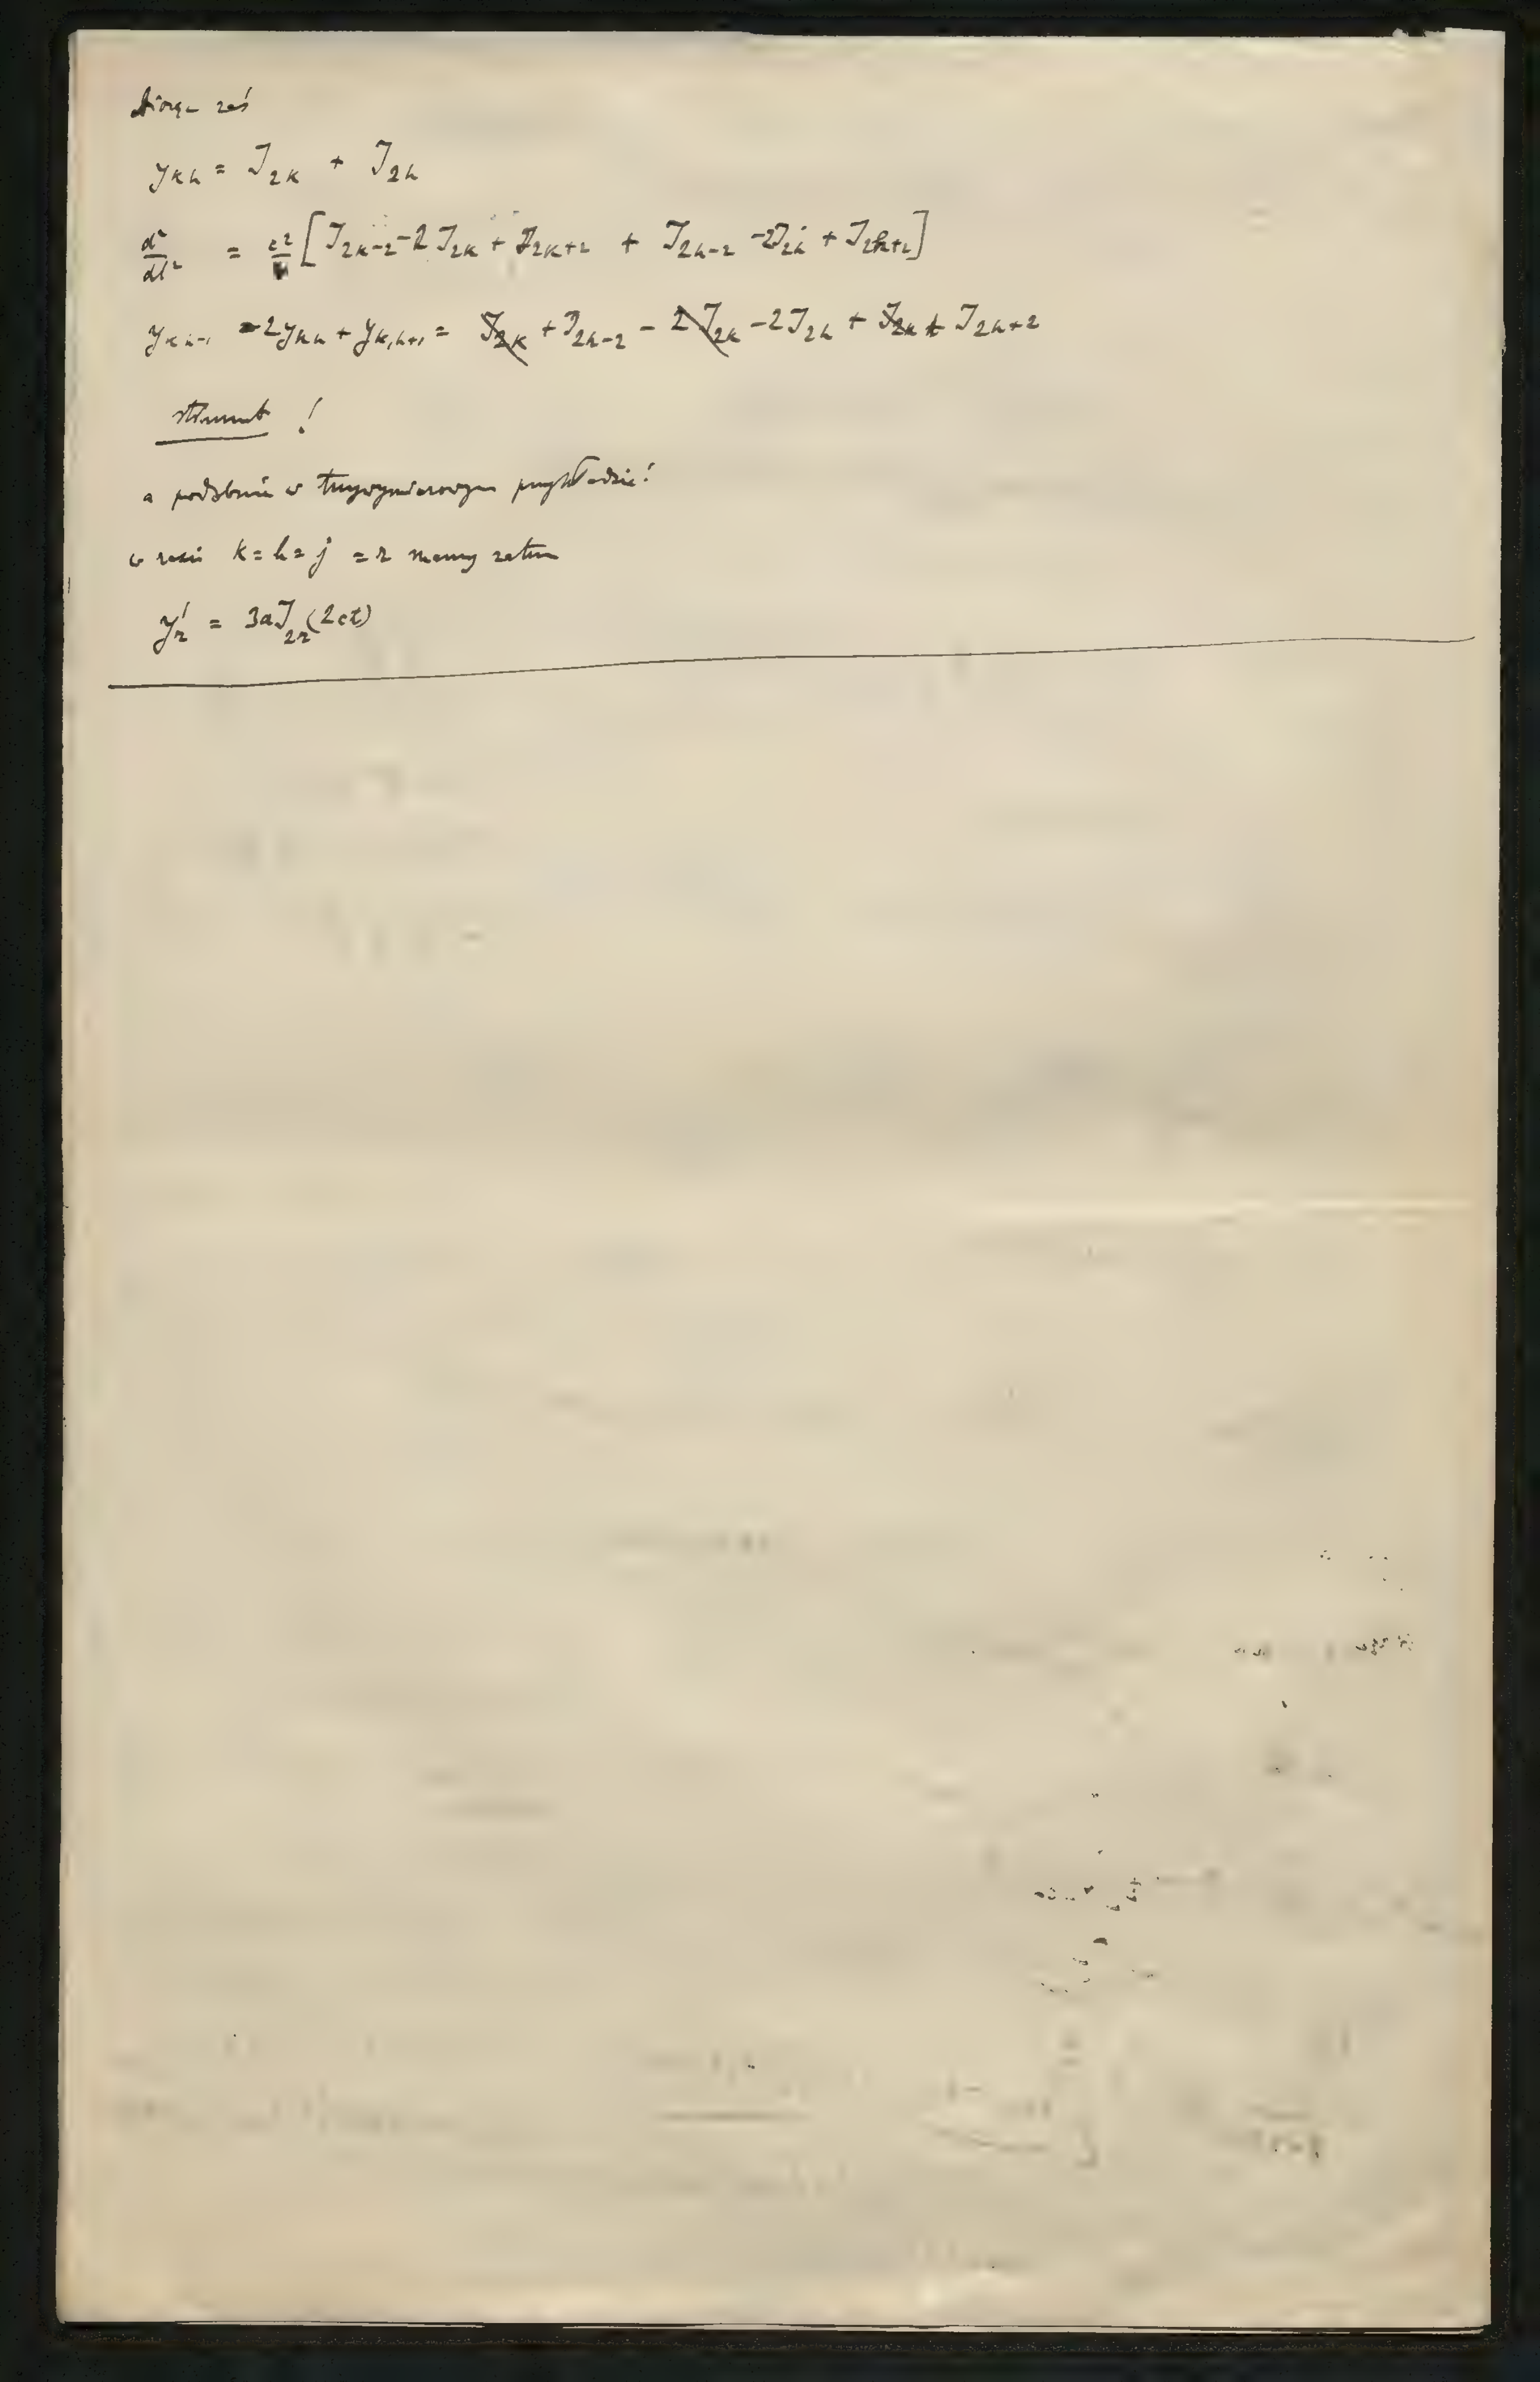 Biorąc zaś
y_{kh} = J_{2k} + J_{2h}
d²/dt² = c²/ [J_{2k-2} - 2J_{2k} + J_{2k+2} + J_{2h-2} - 2J_{2h} + J_{2h+2}]
y_{k h-1} - 2y_{kh} + y_{k,h+1} = J_{2k} + J_{2h-2} - 2J_{2k} - 2J_{2h} + J_{2k} + J_{2h+2}
!
a podobnie w trzywymiarowym przykładzie!
w razie k = h = j = r mamy zatem
y'_r = 3aJ_{2r}(2ct)